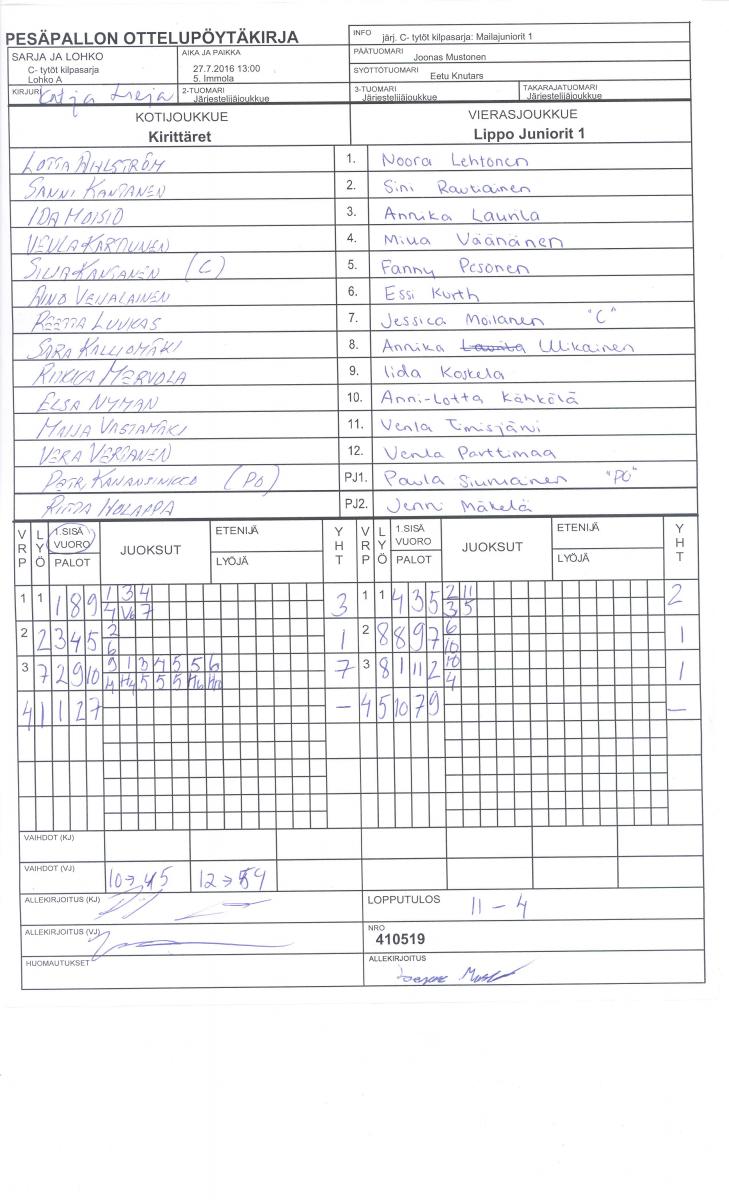 PESÄPALLON OTTELUPÖYTÄKIRJA
INFO järj. C- tytöt kilpasarja: Mailajuniorit 1
SARJA JA LOHKO
C- tytöt kilpasarja
Lohko A
AIKA JA PAIKKA
27.7.2016 13:00
5. Immola
PÄÄTUOMARI
Joonas Mustonen
SYÖTTÖTUOMARI
Eetu Knutars
KIRJURI Katja
2-TUOMARI
Järjestelijäjoukkue
3-TUOMARI
Järjestelijäjoukkue
TAKARAJATUOMARI
Järjestelijäjoukkue
KOTIJOUKKUE
Kirittäret
VIERASJOUKKUE
Lippo Juniorit 1
LOTTA AHLSTRÖM 1. Noora Lehtonen
SANNI KANTANEN 2. Sini Rautiainen
IDA MOISIO 3. Annika Laurila
VENLA KARTTUNEN 4. Miua Väänänen
SILJA KANTANEN (C) 5. Fanny Pesonen
AINO VEIJALAINEN 6. Essi Kurth
REETTA LUUKAS 7. Jessica Moilanen "C"
SARA KALLIOMÄKI 8. Annika Laurila Ulikainen
RIIKKA MERVOLA 9. Iida Koskela
ELSA NYMAN 10. Anni-Lotta Kähkölä
MAIJA VASTAMÄKI 11. Venla Timisjärvi
VERA VERTANEN 12. Venla Parttimaa
PETRI KANANSINKKO (PO) PJ1. Paula "PO"
RIITTA HOLAPPA PJ2. Jenni Mäkelä
VRP LYÖ 1.SISÄ VUORO PALOT JUOKSUT ETENIJÄ LYÖJÄ YHT VRP LYÖ 1.SISÄ VUORO PALOT JUOKSUT ETENIJÄ LYÖJÄ YHT
1 1 1 8 9 1 3 4 3 1 1 4 3 5 2 11 2
4 Vo 7 3 5
2 2 3 4 5 2 1 2 8 8 9 7 6 1
6 10
3 7 2 9 10 9 1 3 4 5 5 6 7 3 8 1 11 2 10 1
4
4 1 1 2 7 – 4 5 10 7 9 –
VAIHDOT (KJ)
VAIHDOT (VJ) 10→
ALLEKIRJOITUS (KJ)
LOPPUTULOS 11 – 4
ALLEKIRJOITUS (VJ)
NRO
410519
HUOMAUTUKSET
ALLEKIRJOITUS